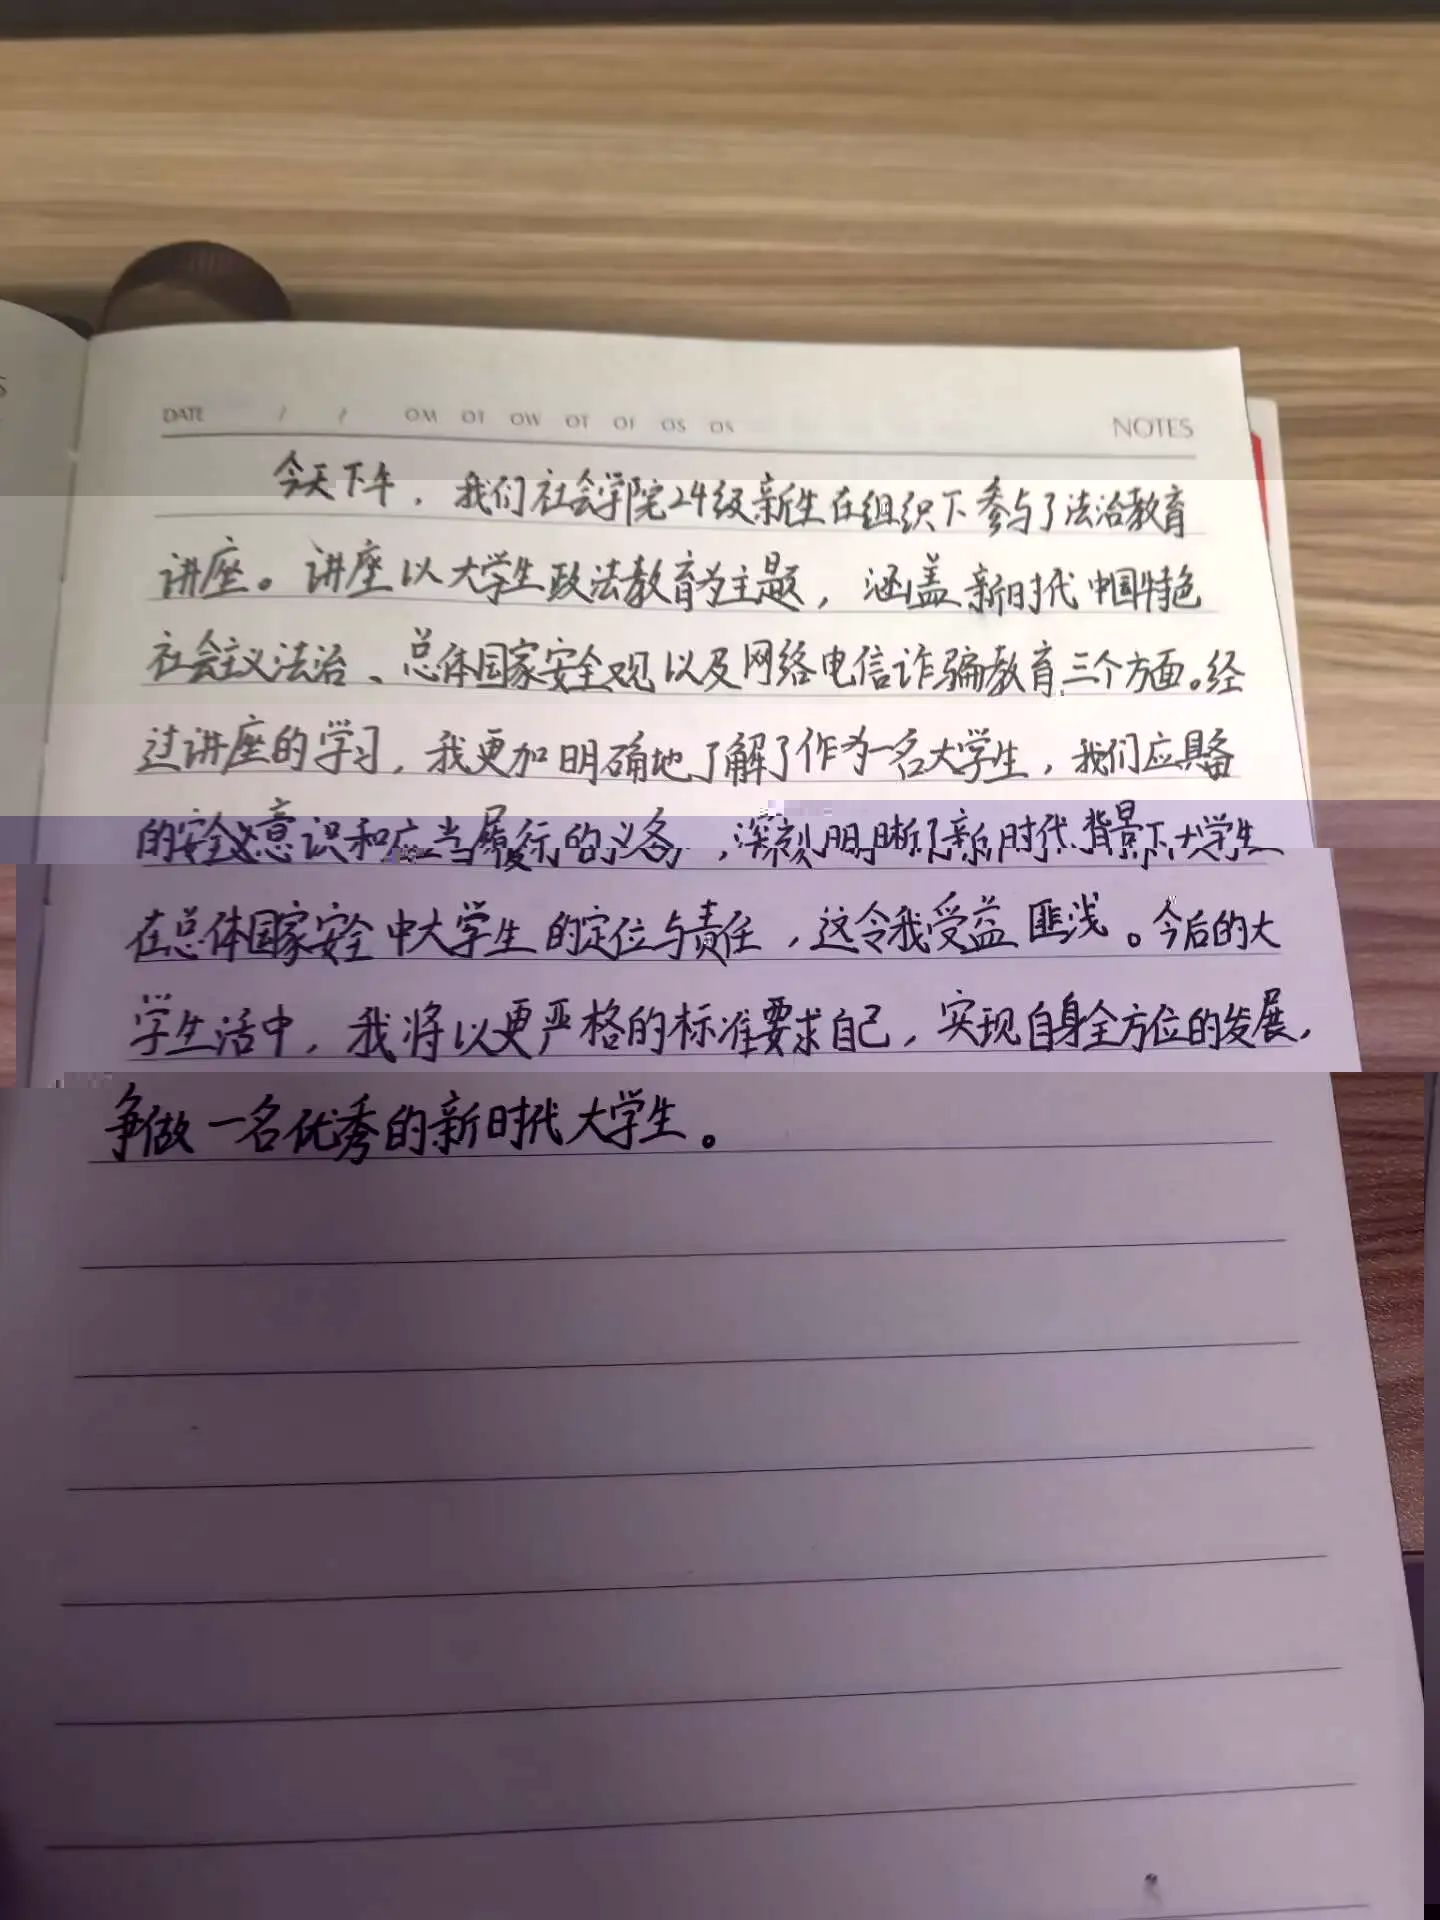 DATE / / OM OT OW OT OF OS OS NOTES
今天下午，我们社会学院24级新生在组织下参与了法治教育
讲座。讲座以大学生政法教育为主题，涵盖新时代中国特色
社会主义法治、总体国家安全观以及网络电信诈骗教育三个方面。经
过讲座的学习，我更加明确地了解了作为一名大学生，我们应具备
的安全意识和应当履行的义务，深刻明晰了新时代背景下大学生
在总体国家安全中大学生的定位与责任，这令我受益匪浅。今后的大
学生活中，我将以更严格的标准要求自己，实现自身全方位的发展，
争做一名优秀的新时代大学生。